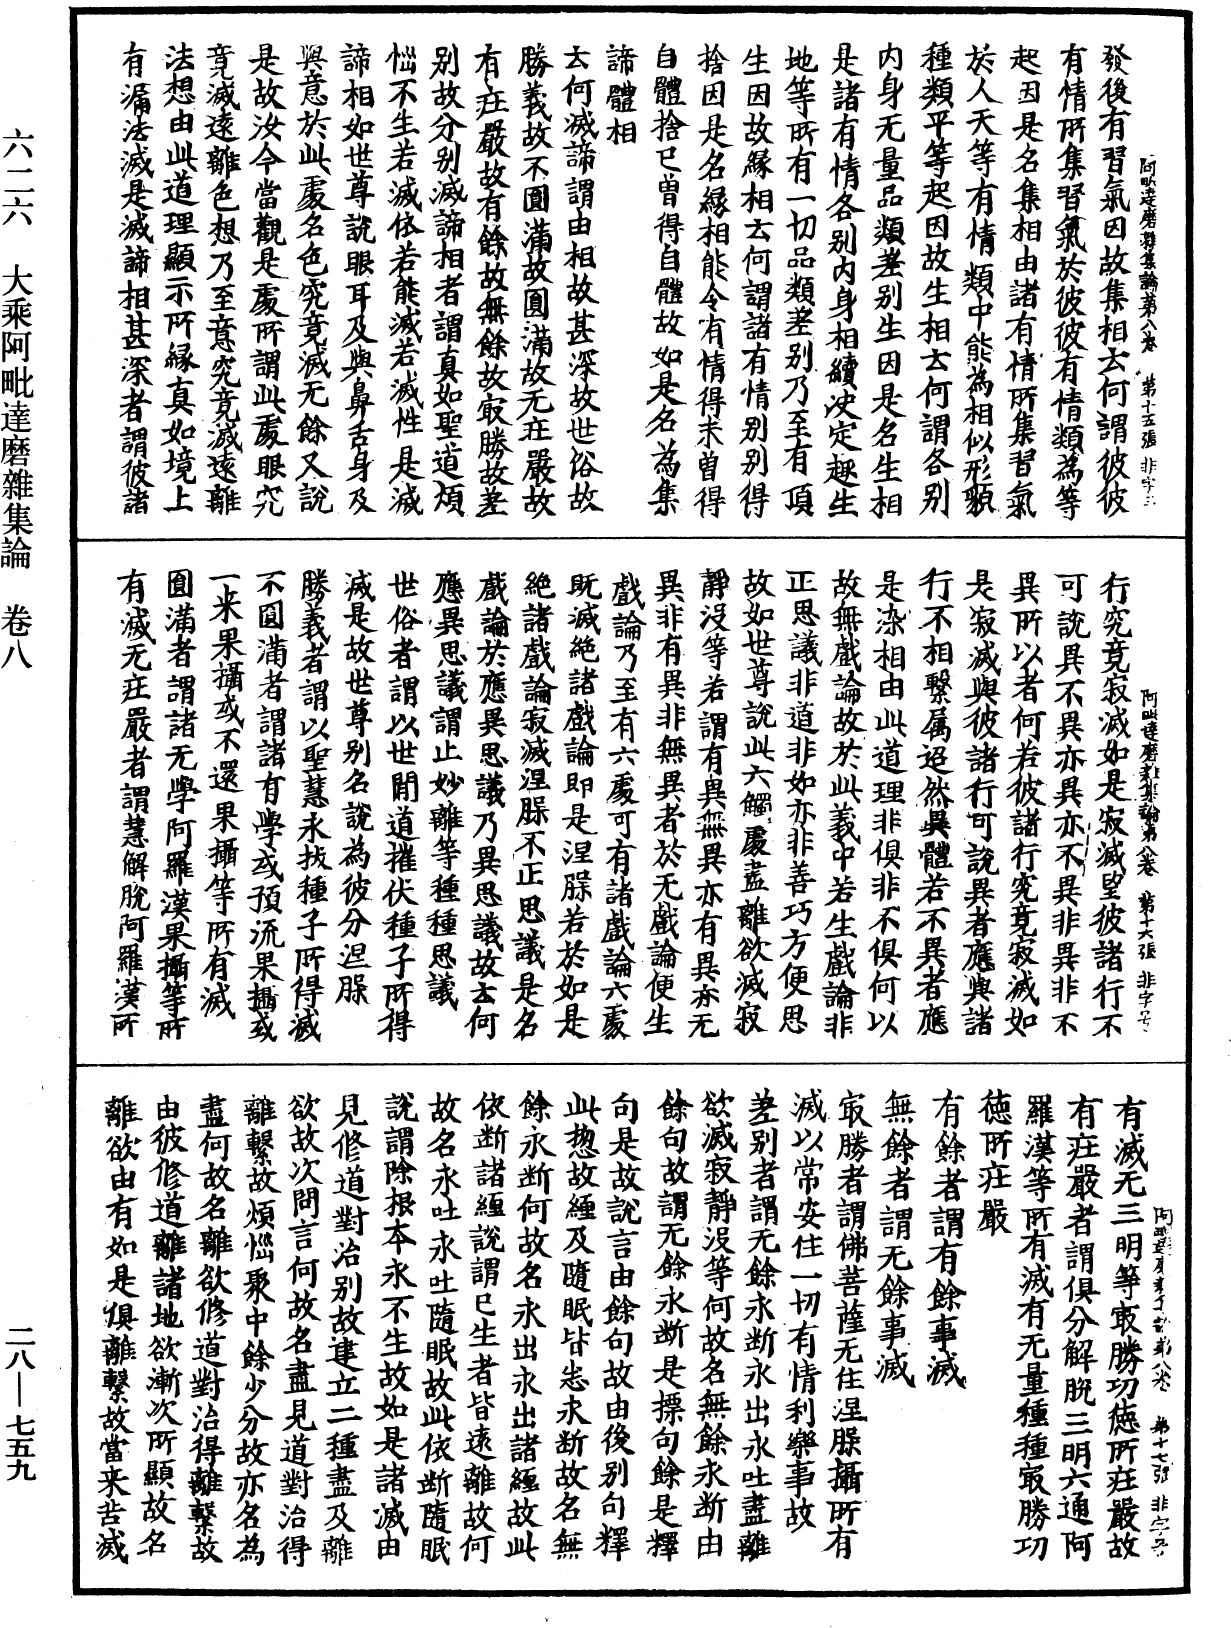 六二六　大乘阿毗達磨雜集論　卷八
二八—七五九
阿毗達磨雜集論第八卷　第十五張　非字三
發後有習氣因故集相云何謂彼彼
有情所集習氣於彼彼有情類為等
起因是名集相由諸有情所集習氣
於人天等有情類中能為相似形類
種類平等起因故生相云何謂各別
内身无量品類差别生因是名生相
是諸有情各别内身相續決定趣生
地等所有一切品類差别乃至有頂
生因故緣相云何謂諸有情别别得
捨因是名緣相能令有情得未曾得
自體捨已曾得自體故如是名為集
諦體相
云何滅諦謂由相故甚深故世俗故
勝義故不圓滿故圓滿故无莊嚴故
有莊嚴故有餘故無餘故㝡勝故差
别故分别滅諦相者謂真如聖道煩
惱不生若滅依若能滅若滅性是滅
諦相如世尊說眼耳及與鼻舌身及
與意於此處名色究竟滅无餘又說
是故汝今當觀是處所謂此處眼究
竟滅遠離色想乃至意究竟滅遠離
法想由此道理顯示所緣真如境上
有漏法滅是滅諦相甚深者謂彼諸
阿毗達磨雜集論第八卷　第十六張　非字号
行究竟寂滅如是寂滅望彼諸行不
可說異不異亦異亦不異非異非不
異所以者何若彼諸行究竟寂滅如
是寂滅與彼諸行可說異者應與諸
行不相繫属迢然異體若不異者應
是染相由此道理非俱非不俱何以
故無戲論故於此義中若生戲論非
正思議非道非如亦非善巧方便思
故如世尊說此六觸處盡離欲滅寂
靜沒等若謂有異無異亦有異亦无
異非有異非無異者於无戲論便生
戲論乃至有六處可有諸戲論六處
既滅絶諸戲論即是涅槃若於如是
絶諸戲論寂滅涅槃不正思議是名
戲論於應異思議乃異思議故云何
應異思議謂止妙離等種種思議
世俗者謂以世間道摧伏種子所得
滅是故世尊别名說為彼分涅槃
勝義者謂以聖慧永拔種子所得滅
不圓滿者謂諸有學或預流果攝或
一来果攝或不還果攝等所有滅
圓滿者謂諸无學阿羅漢果攝等所
有滅无莊嚴者謂慧解脫阿羅漢所
第八卷　第十七張　非字号
有滅无三明等㝡勝功徳所莊嚴故
有莊嚴者謂俱分解脫三明六通阿
羅漢等所有滅有无量種種㝡勝功
徳所莊嚴
有餘者謂有餘事滅
無餘者謂无餘事滅
㝡勝者謂佛菩薩无住涅槃攝所有
滅以常安住一切有情利樂事故
差别者謂无餘永断永出永吐盡離
欲滅寂靜沒等何故名無餘永断由
餘句故謂无餘永断是摽句餘是釋
句是故說言由餘句故由後别句釋
此揔故纏及隨眠皆悉永断故名無
餘永断何故名永出永出諸纏故此
依断諸纏說謂已生者皆遠離故何
故名永吐永吐隨眠故此依断隨眠
說謂除根本永不生故如是諸滅由
見修道對治别故建立二種盡及離
欲故次問言何故名盡見道對治得
離繫故煩惱聚中餘少分故亦名為
盡何故名離欲修道對治得離繫故
由彼修道離諸地欲漸次所顯故名
離欲由有如是俱離繫故當来苦滅